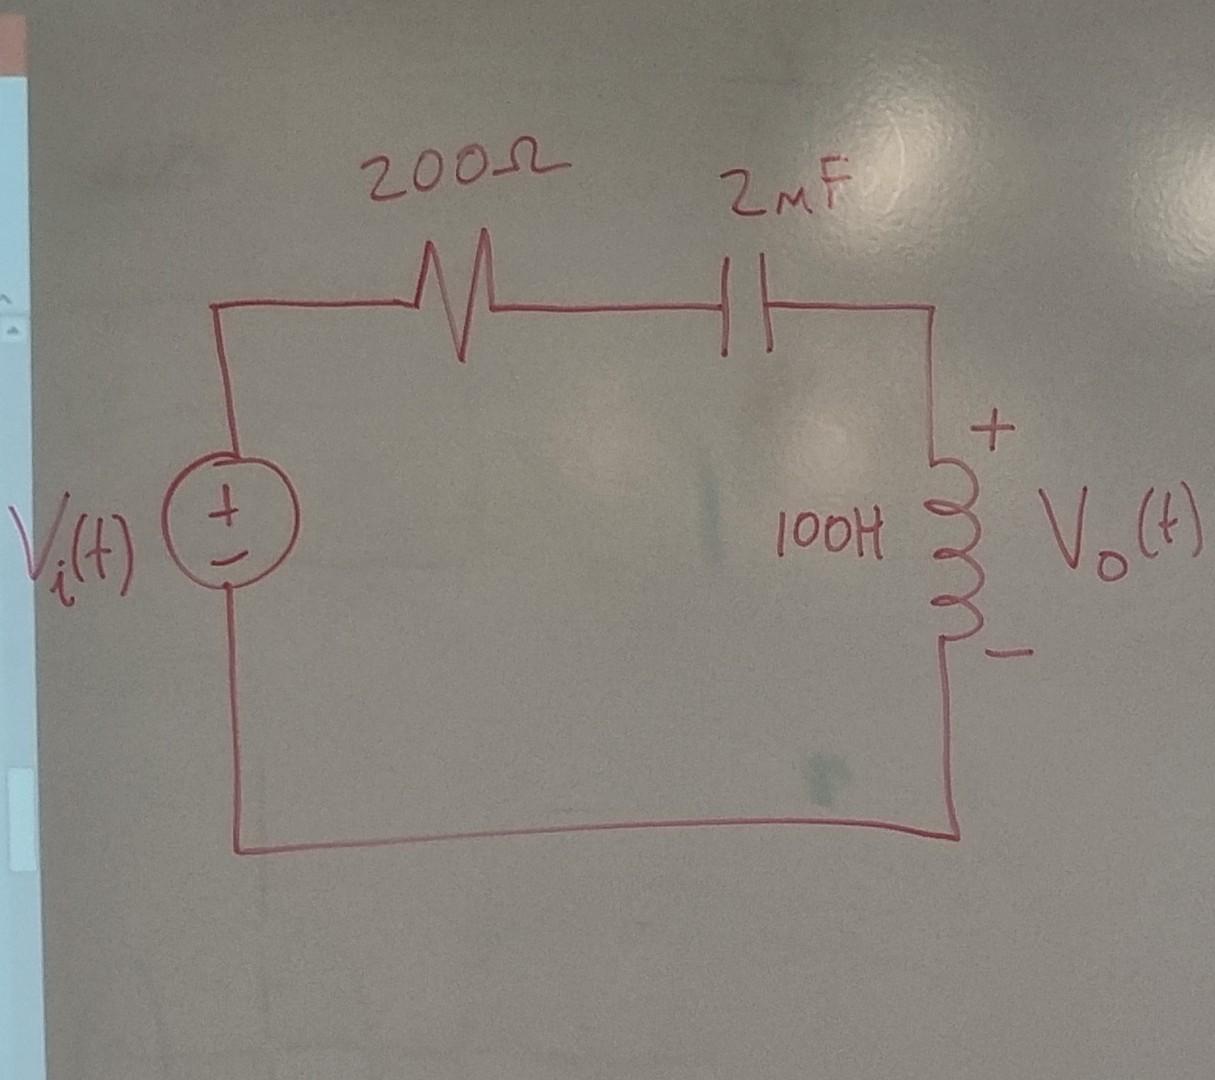 200Ω
2mF
+
Vi(t)
+
-
100H
Vo(t)
-